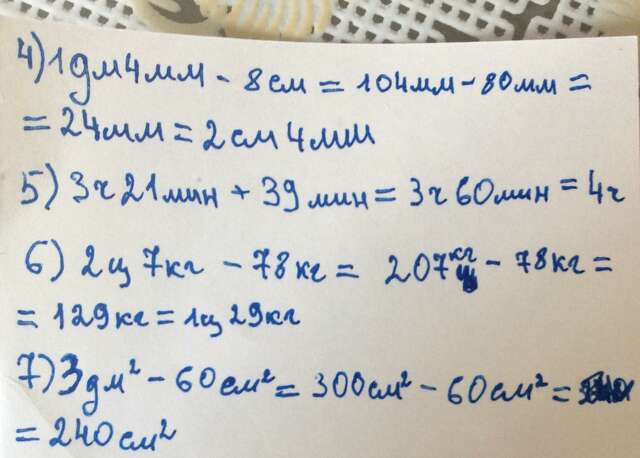 4) 1дм4мм - 8см = 104мм - 80мм =
= 24мм = 2см 4мм
5) 3ч 21мин + 39мин = 3ч 60мин = 4ч
6) 2ц 7кг - 78кг = 207кг - 78кг =
= 129кг = 1ц 29кг
7) 3дм² - 60см² = 300см² - 60см² =
= 240см²